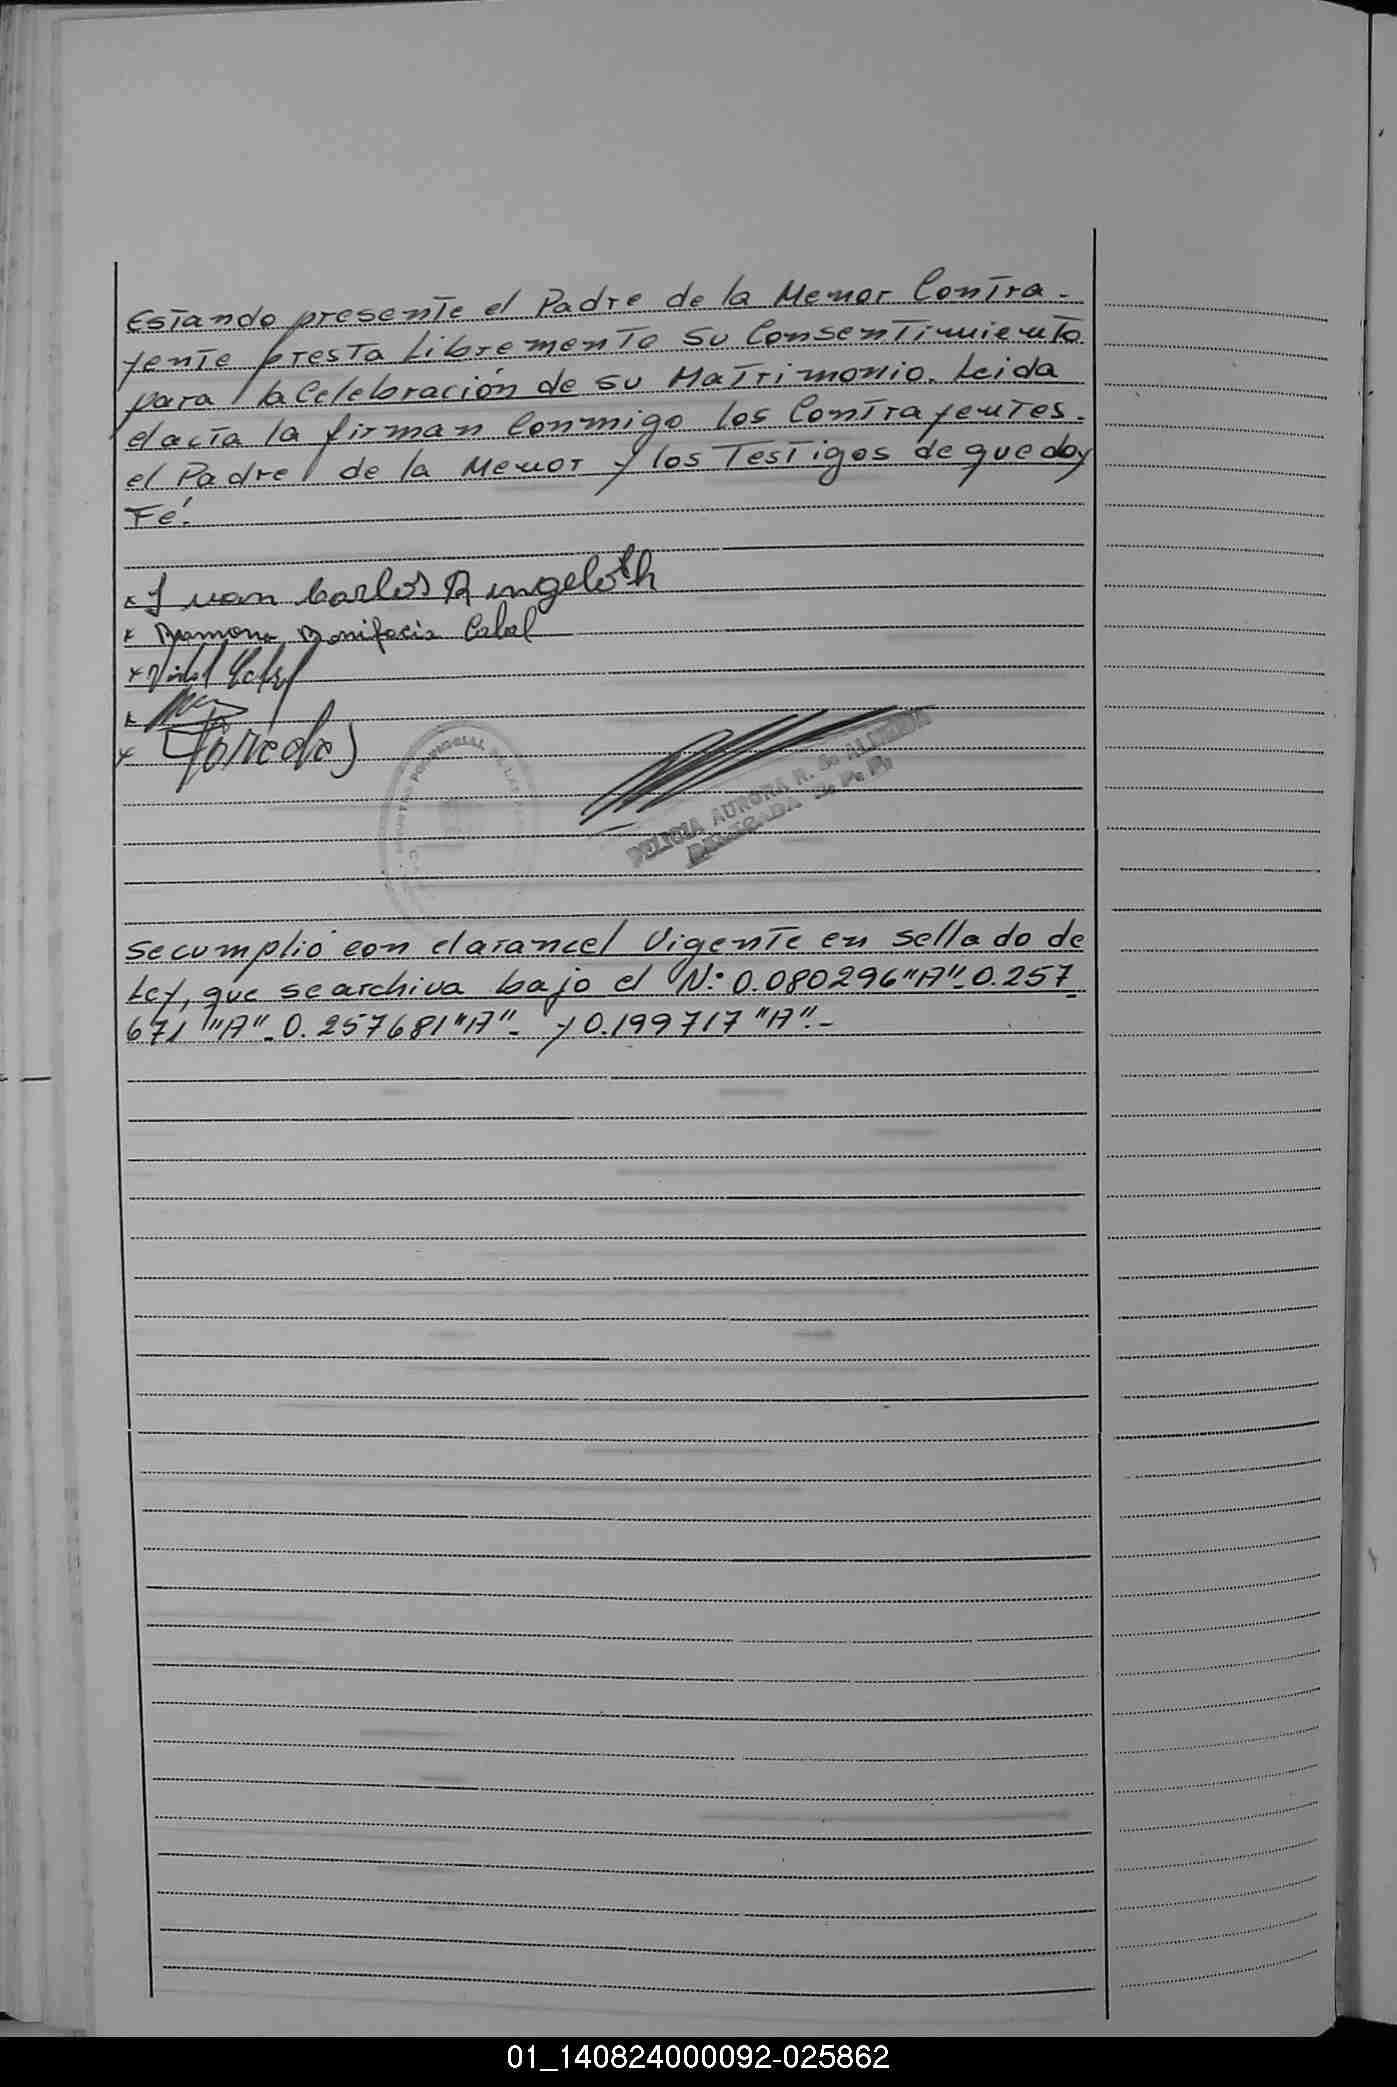 Estando presente el Padre de la Menor Contra-
yente presta Libremente su Consentimiento
para la Celebración de su Matrimonio. Leida
el acta la firman Conmigo los Contrayentes.
el Padre de la Menor y los Testigos de que doy
Fé.
x Juan Carlos Angeloth
x Ramona Bonifacia Cabal
x
x
x Paredes
DELICIA AURORA R. de ALMEIDA
DELEGADA R. P. P.
Se cumplió con el arancel Vigente en sellado de
Ley, que se archiva bajo el N: 0.080296 "A"- 0.257
671 "A"- 0.257681 "A"- y 0.199717 "A".-
01_140824000092-025862